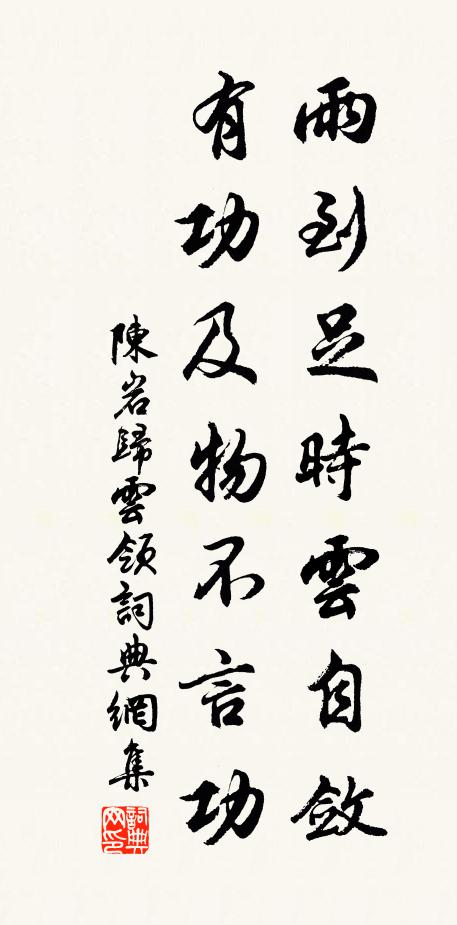 雨到足時雲自斂
有功及物不言功
陳岩歸雲領詞典網集
詞典網印